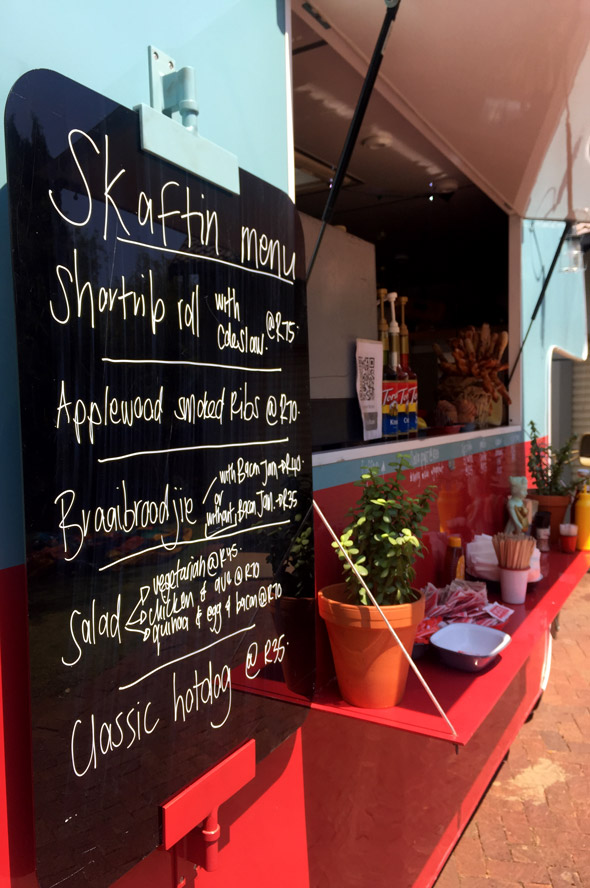 Skaftin menu
Shortrib roll with coleslaw. @R75.
Applewood smoked Ribs @R70.
Braaibroodjie with Bacon Jam. R40
or
without Bacon Jam. R35
Salad vegetarian @R45.
chicken & avo @ R70
quinoa & egg & bacon @R70
Classic hotdog @ R35